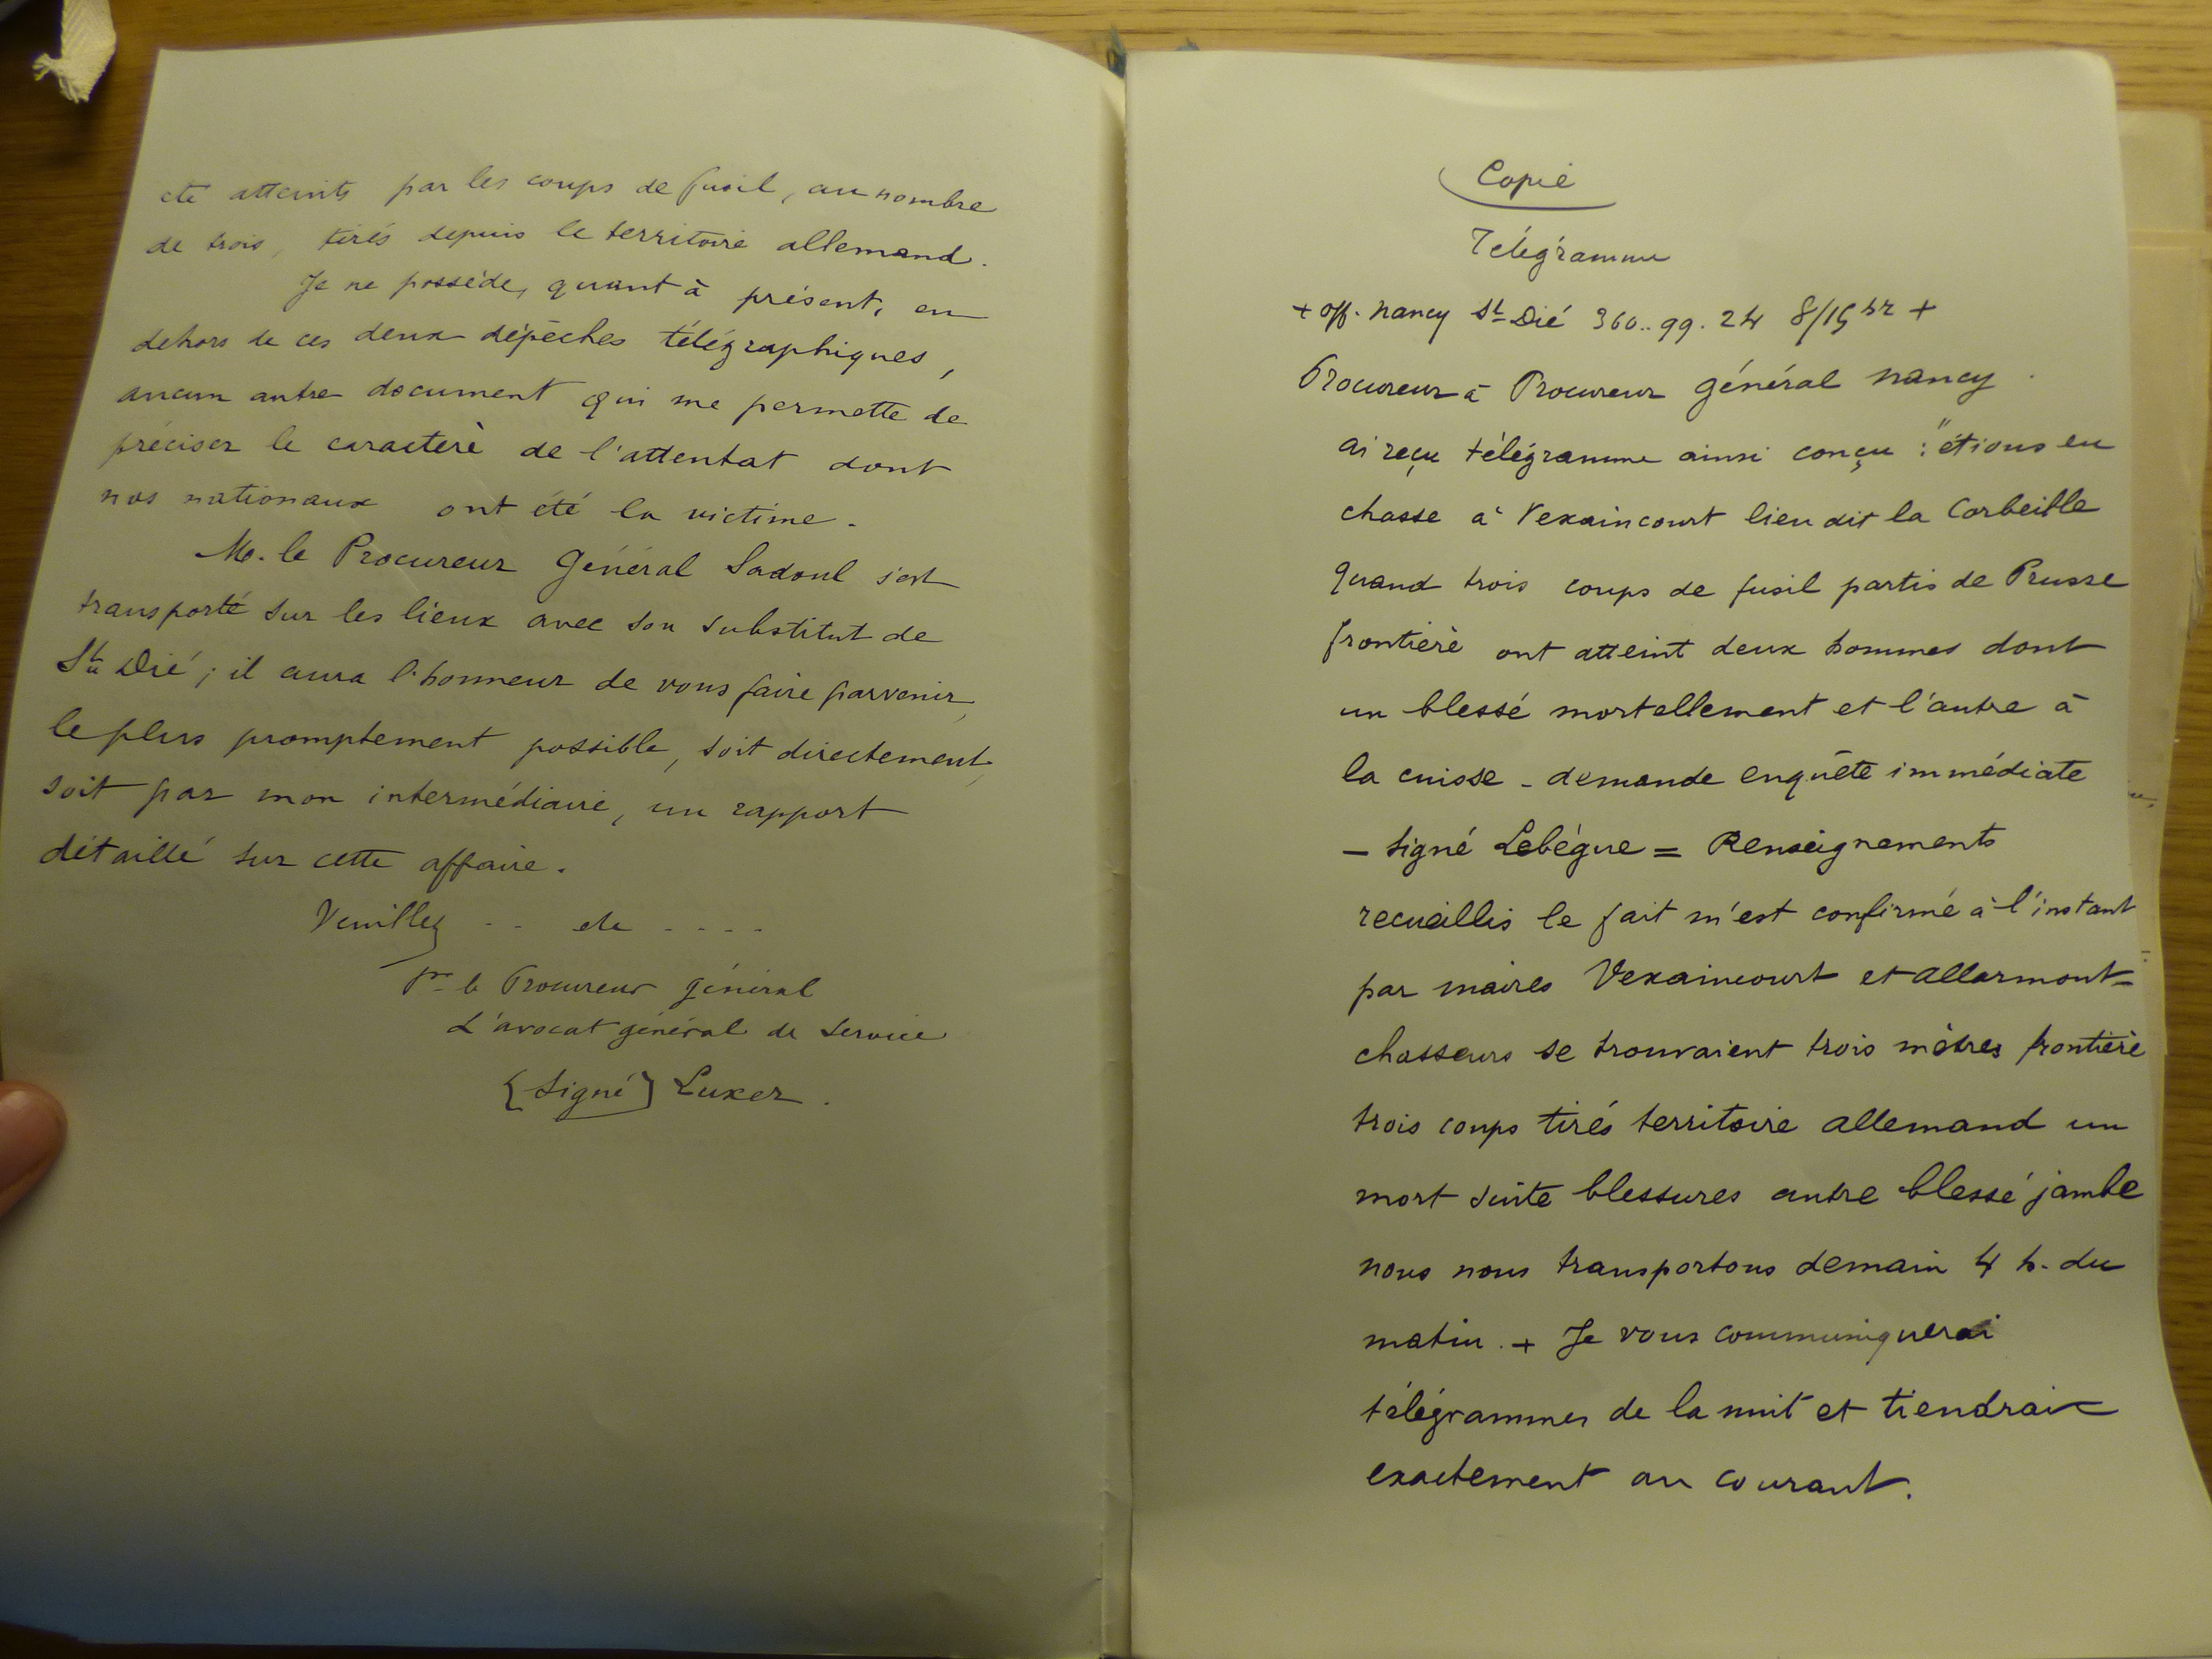 été atteints par les coups de fusil, au nombre
de trois, tirés depuis le territoire allemand.
Je ne possède, quant à présent, en
dehors de ces deux dépêches télégraphiques,
aucun autre document qui me permette de
préciser le caractère de l'attentat dont
nos nationaux ont été la victime.
M. le Procureur Général Sadoul s'est
transporté sur les lieux avec son substitut de
St Dié ; il aura l'honneur de vous faire parvenir,
le plus promptement possible, soit directement,
soit par mon intermédiaire, un rapport
détaillé sur cette affaire.
Veuillez .. etc ....
Pr le Procureur général
L'avocat général de service
(signé) Luxer.
Copie
Télégramme
+ off. Nancy St Dié 360..99. 24 8/15 +
Procureur à Procureur général Nancy.
ai reçu télégramme ainsi conçu : "étions en
chasse à Vexaincourt lieu dit la Corbeille
quand trois coups de fusil partis de Prusse
frontière ont atteint deux hommes dont
un blessé mortellement et l'autre à
la cuisse - demande enquête immédiate
- signé Lebègue = Renseignements
recueillis le fait m'est confirmé à l'instant
par maires Vexaincourt et allarmont =
chasseurs se trouvaient trois mètres frontière
trois coups tirés territoire allemand un
mort suite blessures autre blessé jambe
nous nous transportons demain 4 h. du
matin. + Je vous communiquerai
télégrammes de la nuit et tiendrai
exactement au courant.